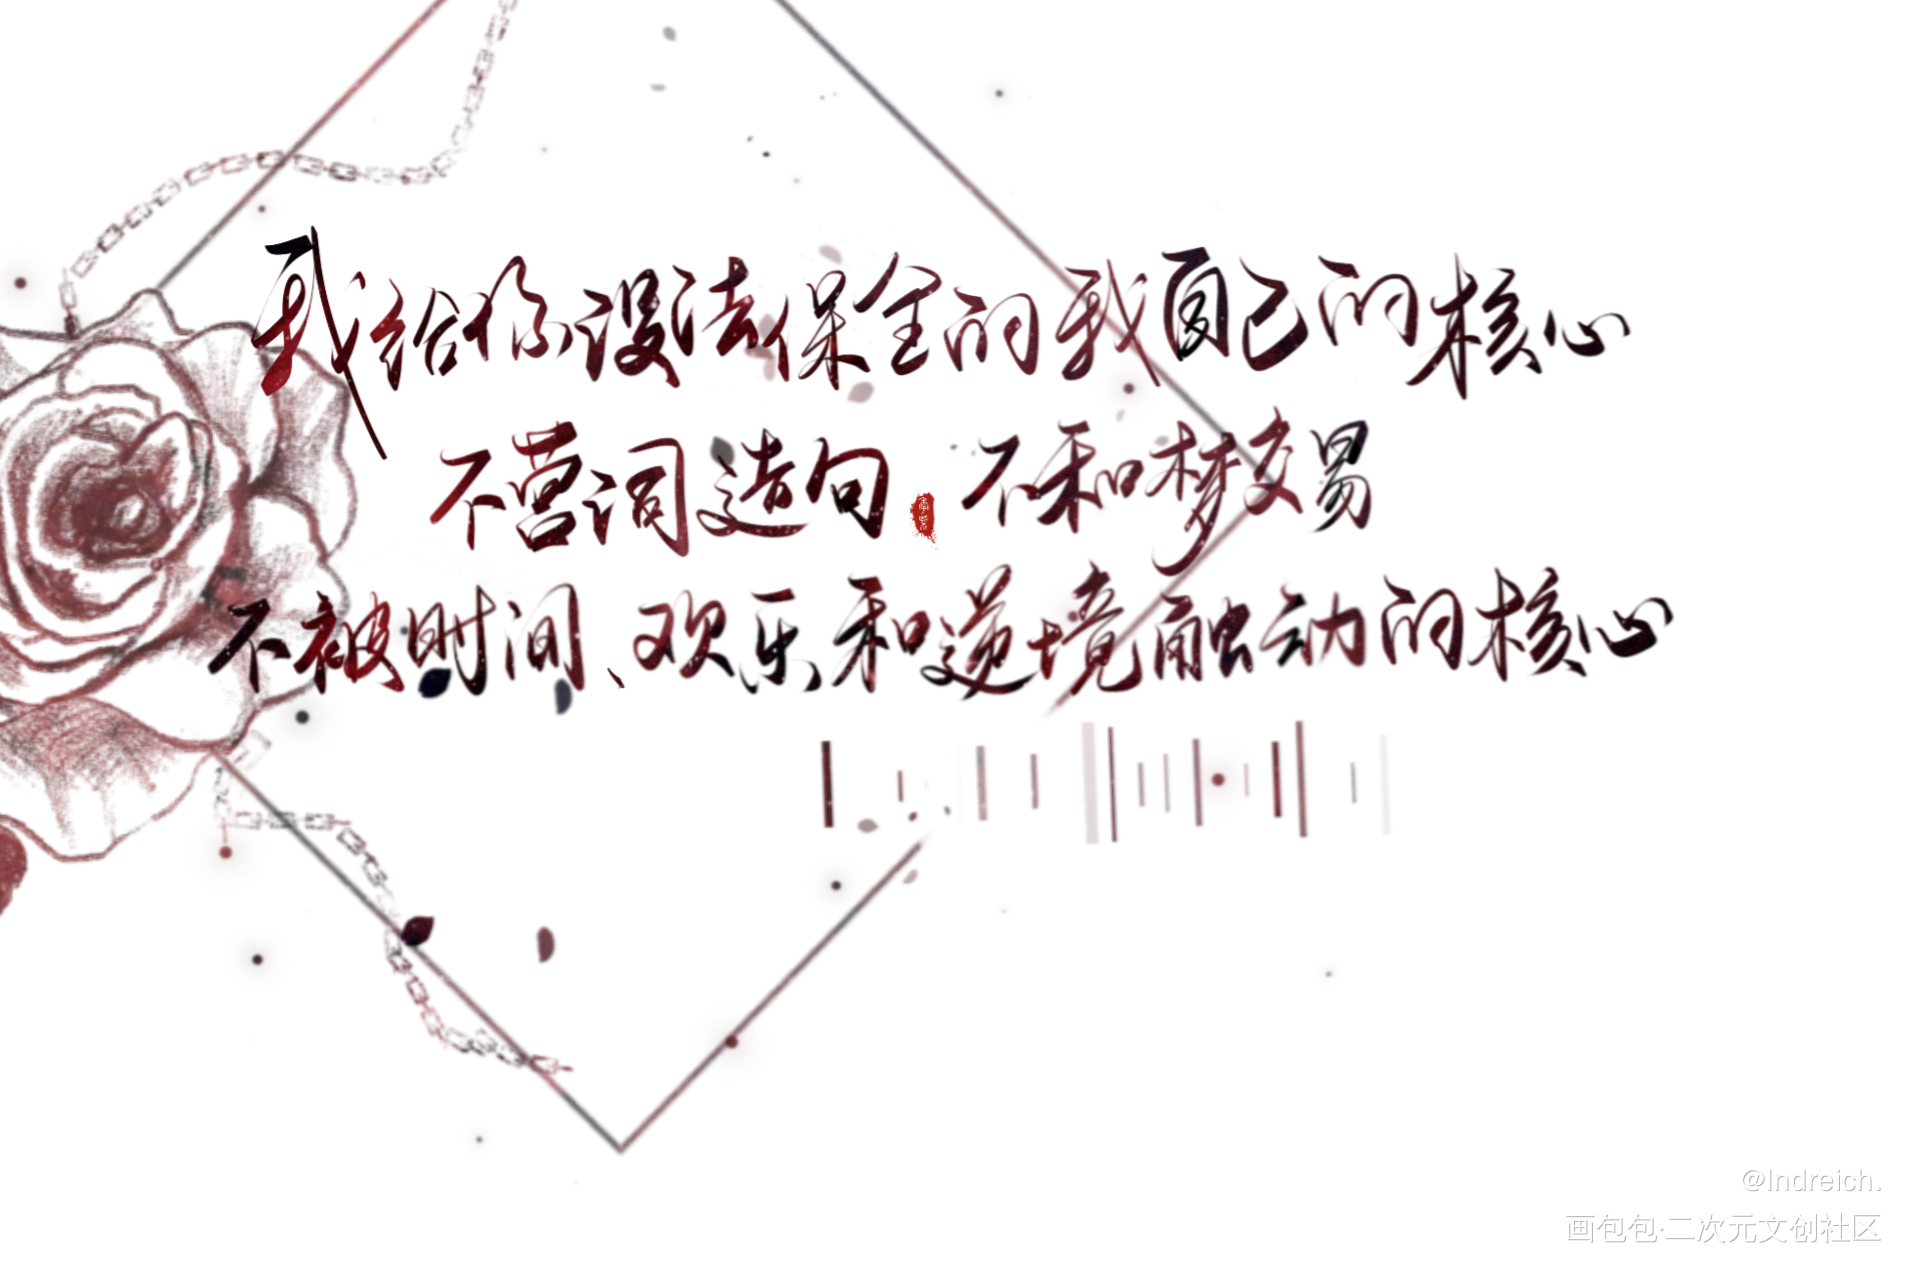 我给你设法保全的我自己的核心
不营词造句 不和梦交易
不被时间、欢乐和逆境触动的核心
@Indreich.
画包包·二次元文创社区